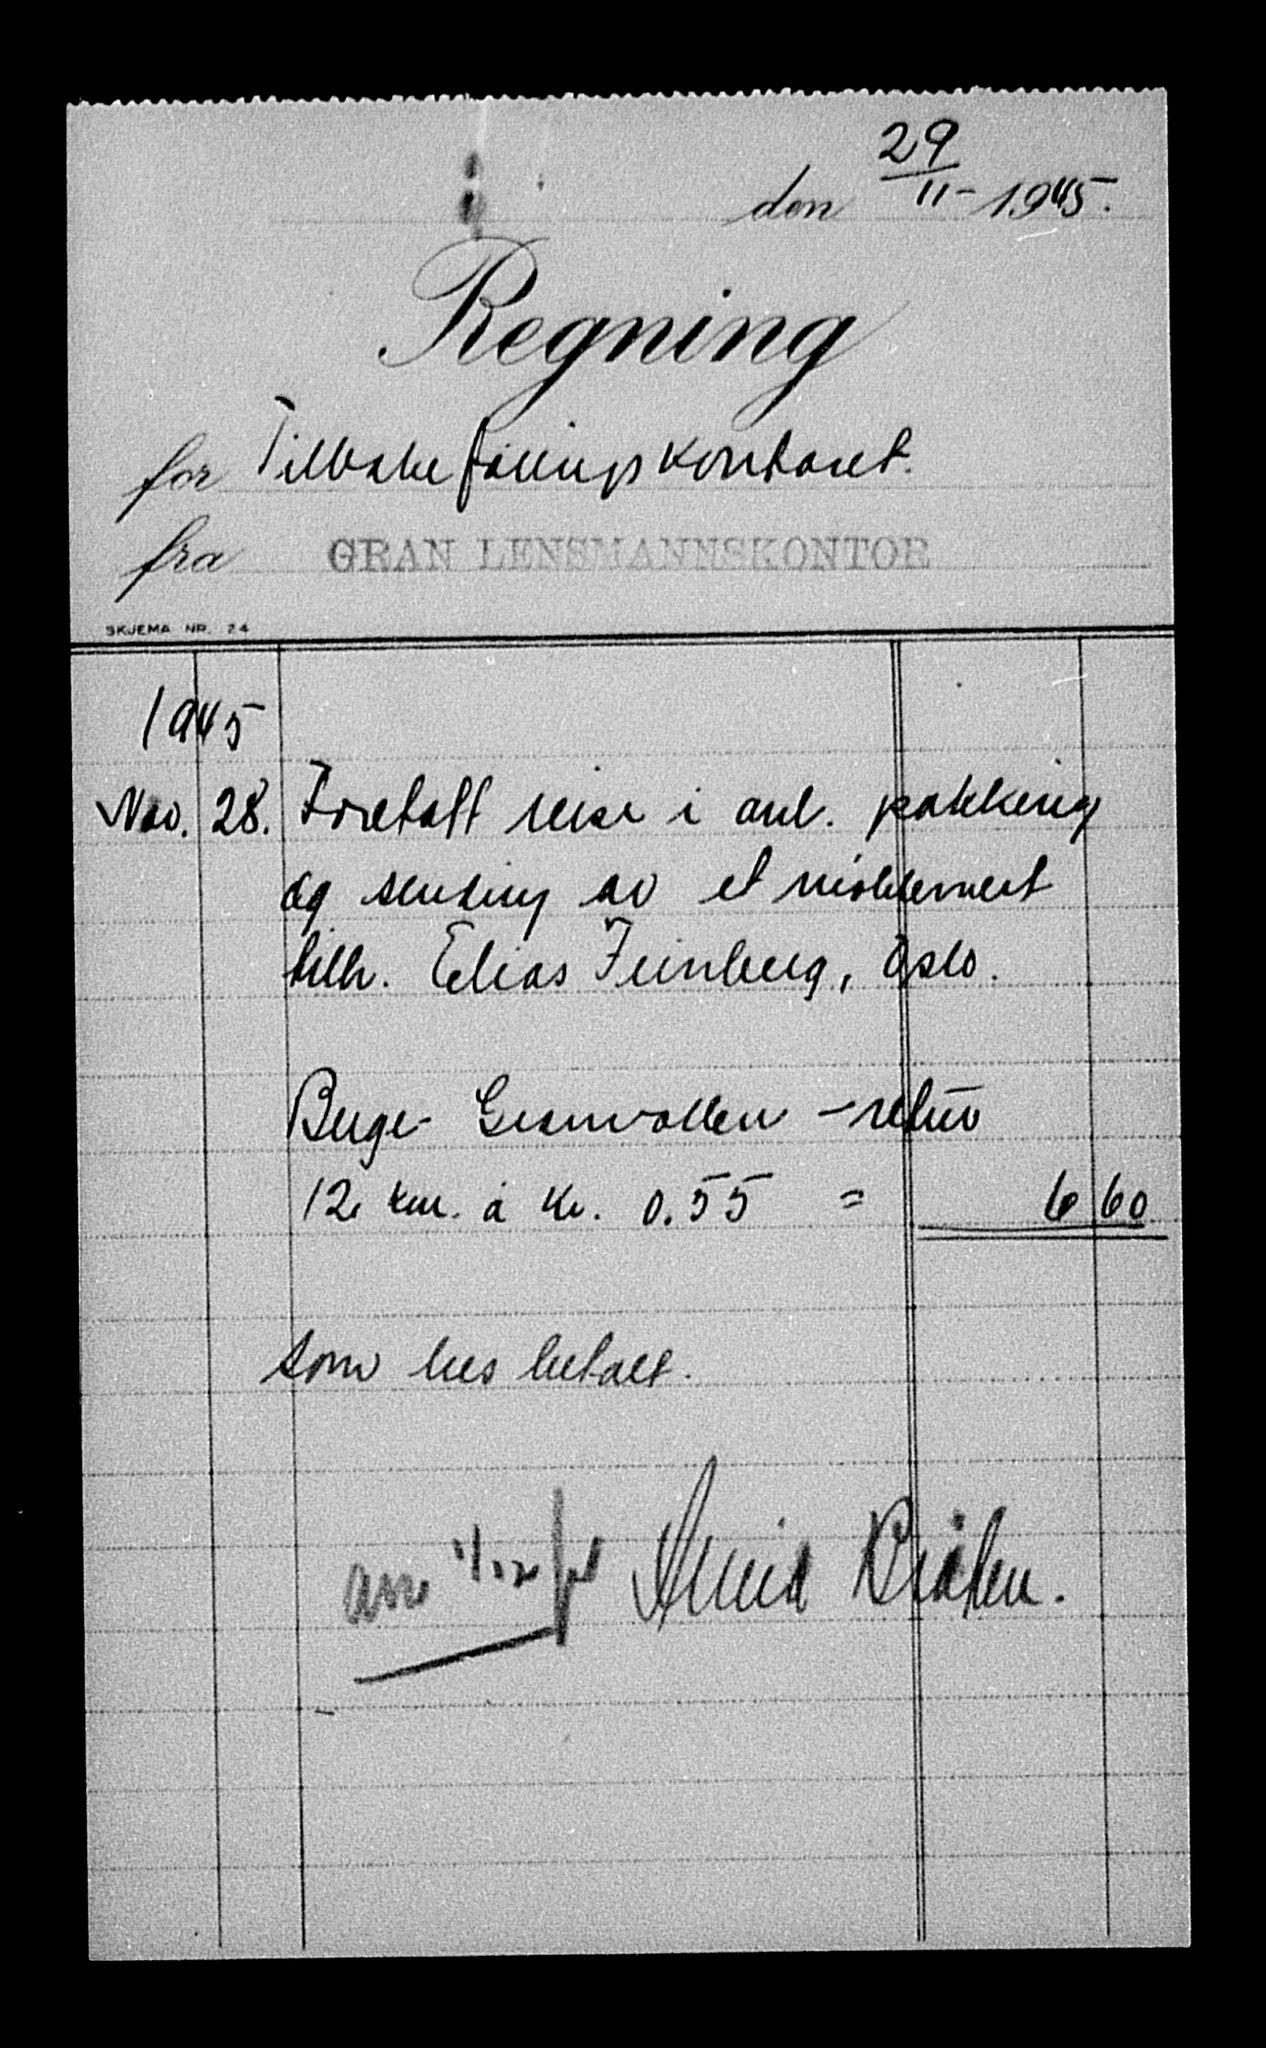 den 29/11-1945.
Regning
for Tilbakeføringskontoret.
fra GRAN LENSMANNSKONTOR
SKJEMA NR. 24
1945
Nov. 28. Foretatt reise i anl. pakking
og sending av et
tilh. Elias Feinberg, Oslo.
Granvollen - retur
12 km. á kr. 0.55 = 6 60
som bes betalt.
1/12